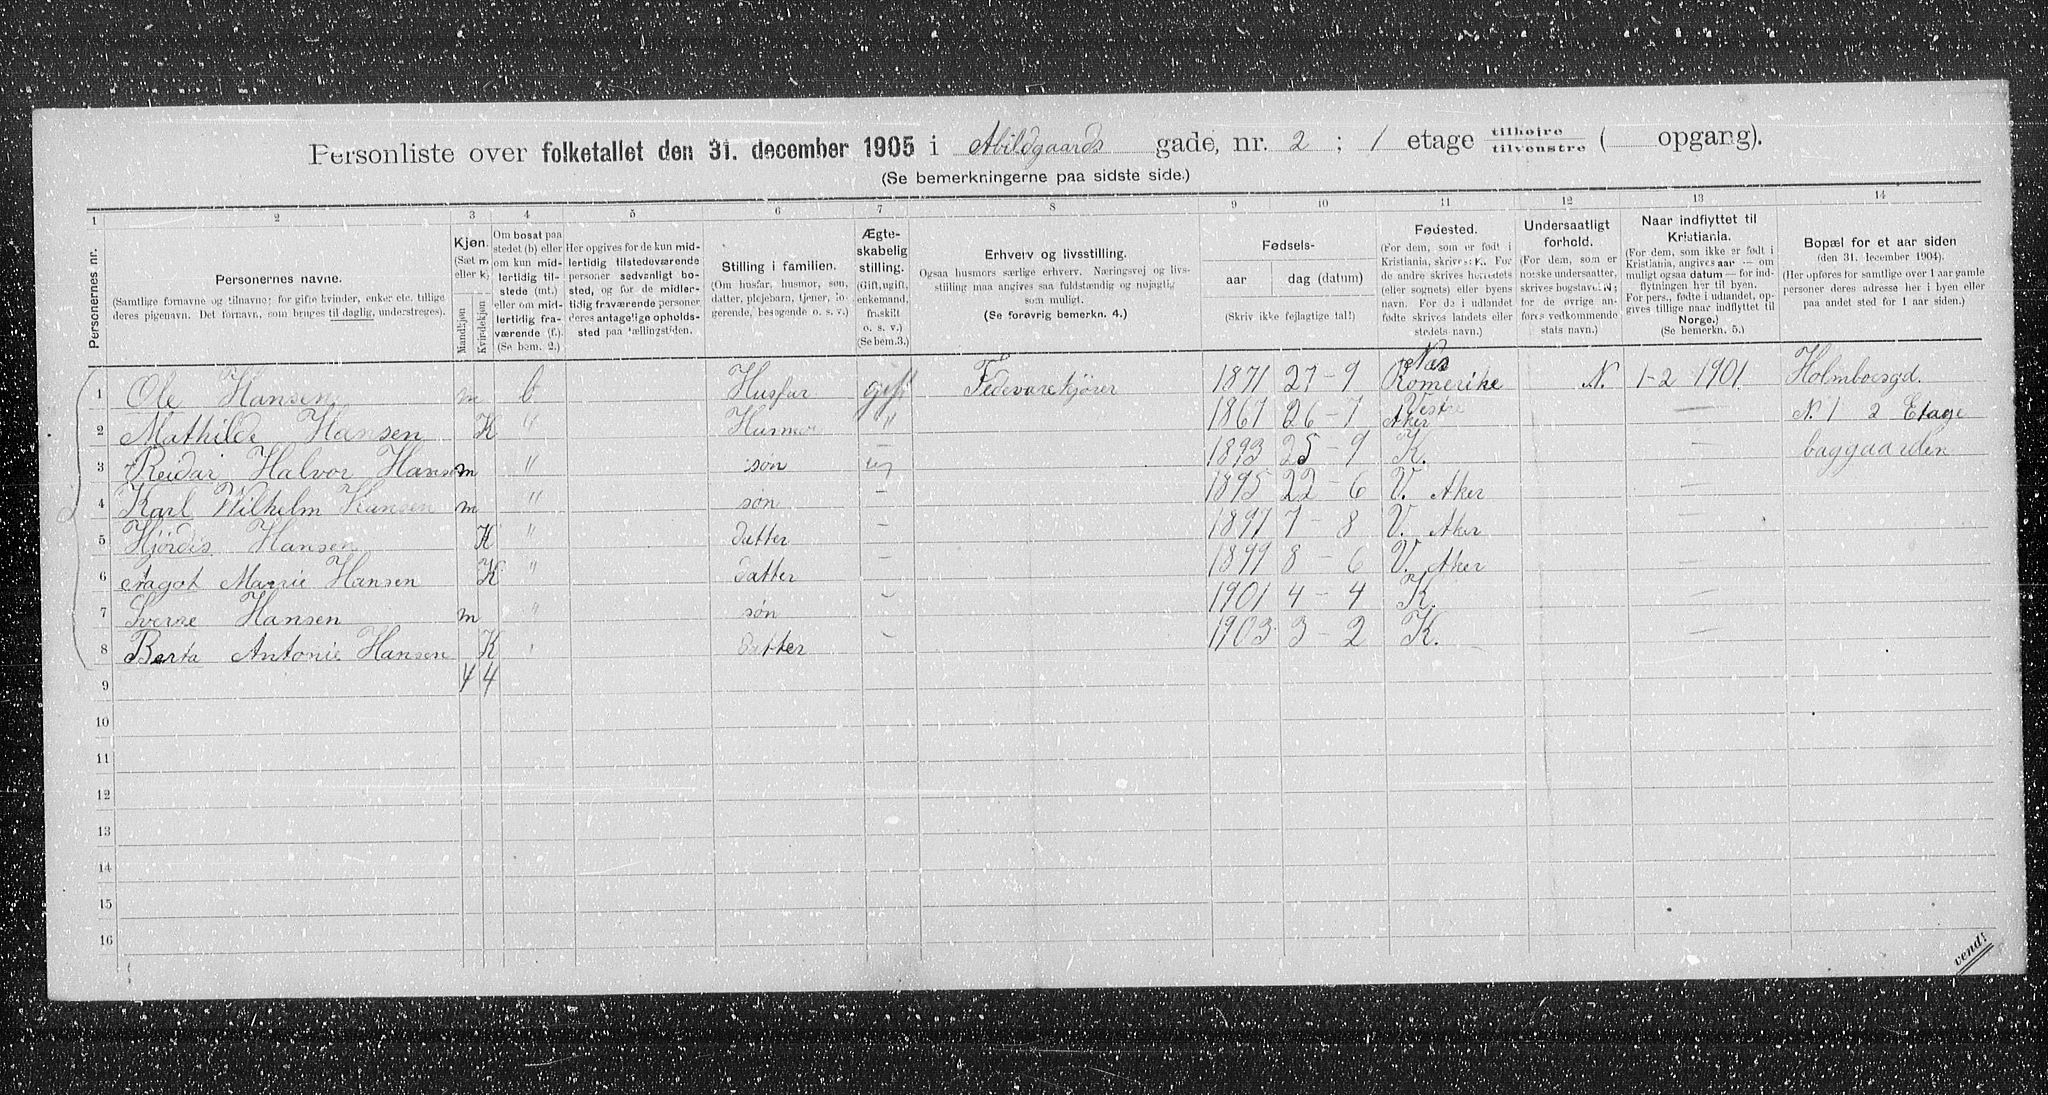 Personliste over folketallet den 31. december 1905 i Abildgaards gade, nr. 2 ; 1 etage tilhøjre tilvenstre ( opgang).
(Se bemerkningerne paa sidste side.)
1 2 3 4 5 6 7 8 9 10 11 12 13 14
Personernes nr.
Personernes navne.
(Samtlige fornavne og tilnavne; for gifte kvinder, enker etc. tillige
deres pigenavn. Det fornavn, som bruges til daglig, understreges).
Kjøn.
(Sæt m
eller k)
Mandkjøn
Kvindekjøn
Om bosat paa
stedet (b) eller
om kun mid-
lertidig til-
stede (mt.)
eller om mid-
lertidig fra-
værende (f.).
(Se bem. 2.)
Her opgives for de kun mid-
lertidig tilstedeværende
personer sedvanligt bo-
sted, og for de midler-
tidig fraværende personer
deres antagelige opholds-
sted paa tællingstiden.
Stilling i familien.
(Om husfar, husmor, søn,
datter, plejebarn, tjener, lo-
gerende, besøgende o. s. v.)
Ægte-
skabelig
stilling.
(Gift, ugift,
enkemand,
fraskilt
o. s. v.)
(Se bem.3.)
Erhverv og livsstilling.
Ogsaa husmors særlige erhverv. Næringsvej og livs-
stilling maa angives saa fuldstændig og nøjagtig
som muligt.
(Se forøvrig bemerkn. 4.)
Fødsels-
aar dag (datum)
(Skriv ikke fejlagtige tal!)
Fødested.
(For dem, som er født i
Kristiania, skrives: K. For
de andre skrives herredets
(eller sognets) eller byens
navn. For de i udlandet
fødte skrives landets eller
stedets navn.)
Undersaatligt
forhold.
(For dem, som er
norske undersaatter,
skrives bogstavet N;
for de øvrige an-
føres vedkommende
stats navn.)
Naar indflyttet til
Kristiania.
(For dem, som ikke er født i
Kristiania, angives aar — om
muligt ogsaa datum — for ind-
flytningen her til byen.
For pers., fødte i udlandet, op-
gives tillige naar indflyttet til
Norge.)
(Se bemerkn. 5.)
Bopæl for et aar siden
(den 31. december 1904).
(Her opføres for samtlige over 1 aar gamle
personer deres adresse her i byen eller
paa andet sted for 1 aar siden.)
1 Ole Hansen m b Husfar gift Fedevarekjører 1871 27-9 Næs Romerike N. 1-2 1901 Holmboesgd.
2 Mathilde Hansen K " Husmor " 1867 26-7 Vestre Aker — N. 1 2 Etage
3 Reidar Halvor Hansen m " søn ug 1893 25-9 K. — baggaarden
4 Karl Wilhelm Hansen m " søn – 1895 22-6 V. Aker —
5 Hjørdis Hansen K " datter – 1897 7-8 V. Aker —
6 Magot Marrie Hansen K " datter – 1899 8-6 V. Aker —
7 Sverre Hansen m " søn – 1901 4-4 K. —
8 Berta Antonie Hansen K " datter – 1903 3-2 K. —
9 4 4
10
11
12
13
14
15
16
vend!